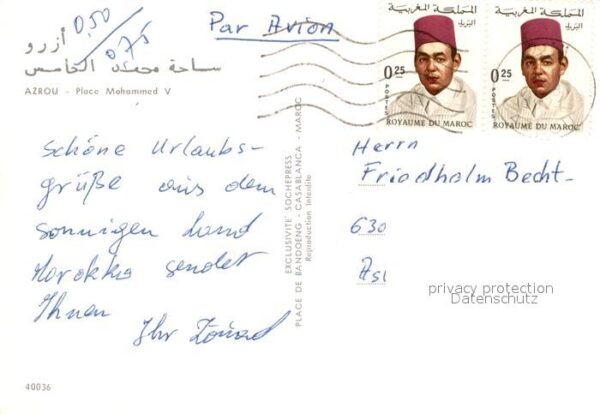 0,50
0,75
أزرو
ساحة محمد الخامس
AZROU - Place Mohammed V
Par Avion
المملكة المغربية
البريد
0.25
POSTES
ROYAUME DU MAROC
المملكة المغربية
البريد
0.25
POSTES
ROYAUME DU MAROC
Schöne Urlaubs-
grüße aus dem
sonnigen Land
Marokko sendet
Ihnen
Ihr
EXCLUSIVITÉ SOCHEPRESS
PLACE DE BANDOENG - CASABLANCA - MAROC
Reproduction Interdite
Herrn
Friedholm Becht-
630
privacy protection
Datenschutz
40036